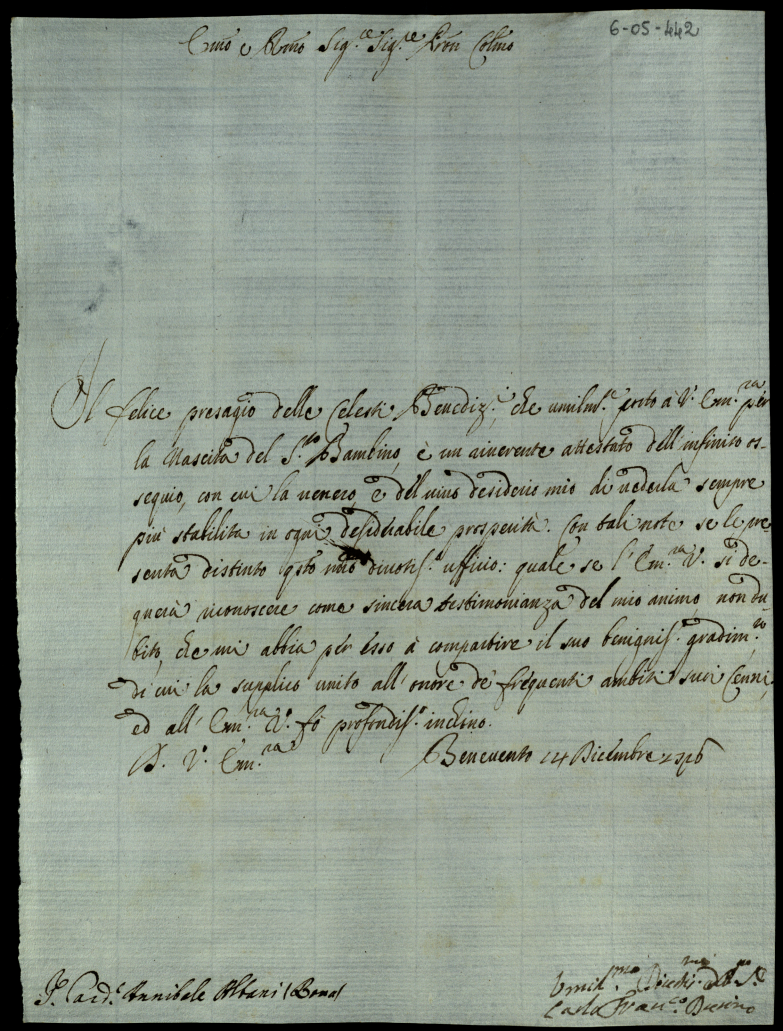 6-05-442
Emo e Rmo Sig.re Sig.re Pron Colmo
Il felice presagio delle Celesti Benediz.i, che umilm.e porto à V. Em.za per
la Nascita del S.to Bambino, è un riverente attestato dell'infinito os-
sequio, con cui la venero, e del vivo desiderio mio di vederla sempre
più stabilita in ogni desiderabile prosperità. Con tali note se le pre-
senta distinto qsto mio divotis.o ufficio: quale se l'Em.za V. si de-
gnerà riconoscere come sincera testimonianza del mio animo, non du-
bito, che mi abbia per esso à compartire il suo benignis.o gradim.to
di cui la supplico unito all'onore de' frequenti ambiti suoi Cenni,
ed all'Em.za V.a fò profondis.o inchino.
D. V. Em.za
Benevento 24 Dicembre
S.r Card.e Annibale Albani (Roma)
Umil.mo
Carlo Fran.co